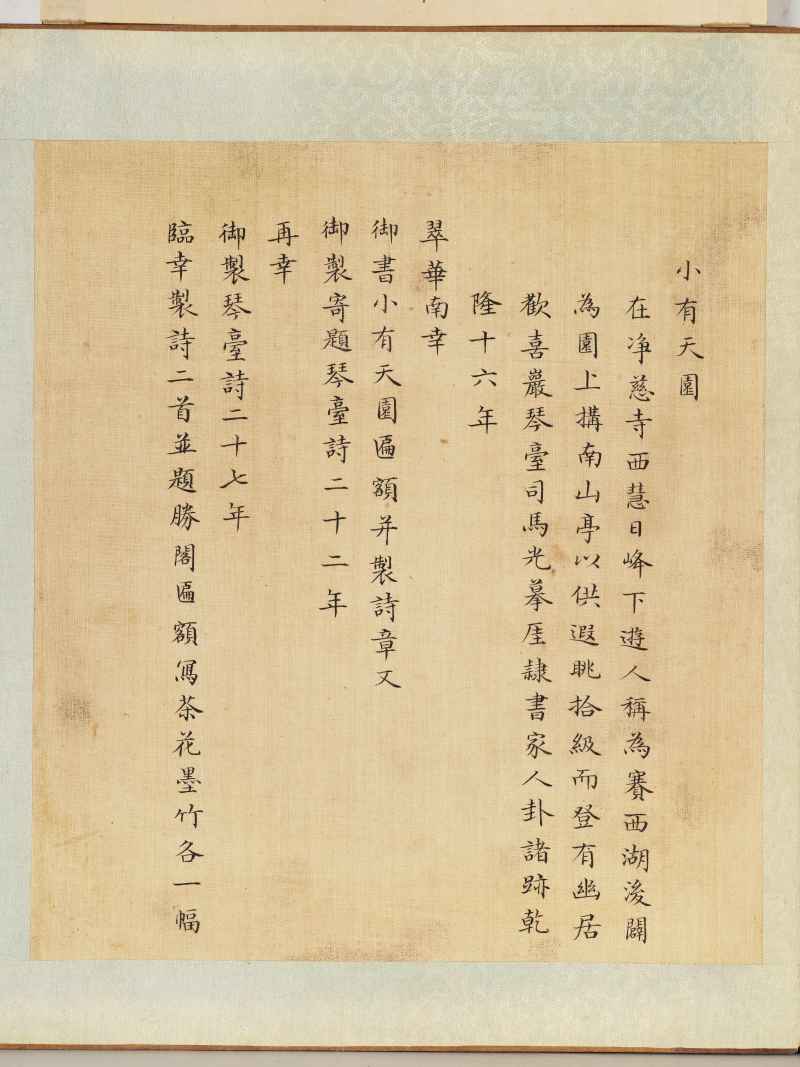 小有天園
在净慈寺西慧日峰下遊人稱為賽西湖後闢
為園上搆南山亭以供遐眺拾級而登有幽居
歡喜巖琴臺司馬光摹厓隸書家人卦諸跡乾
隆十六年
翠華南幸
御書小有天園匾額并製詩章又
御製寄題琴臺詩二十二年
再幸
御製琴臺詩二十七年
臨幸製詩二首並題勝閣匾額寫茶花墨竹各一幅